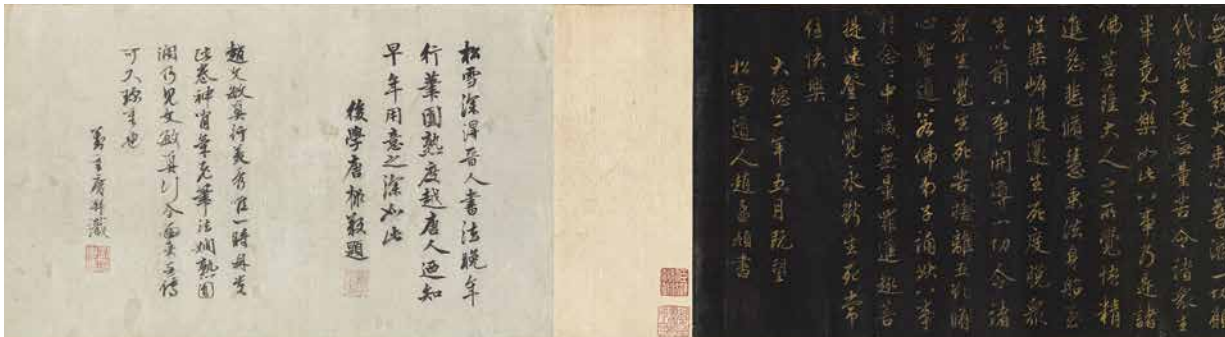 無量發大乘心普濟一切願
代衆生受無量苦令諸衆生
畢竟大樂如此八事乃是諸
佛菩薩大人之所覺悟精
進慈悲脩慧乘法身船至
涅槃岸復還生死度脫衆
生以前八事開導一切令諸
衆生覺生死苦捨離五欲脩
心聖道若佛弟子誦此八事
於念念中滅無量罪進趣菩
提速登正覺永斷生死常
住快樂
大德二年五月既望
松雪道人趙孟頫書
松雪深得晉人書法晚年
行筆圓熟度越唐人迺知
早年用意之深如此
後學唐棣敬題
趙文敏真行美秀一時
此卷神筆法嫻熟圓
潤乃見文敏真
可不珍